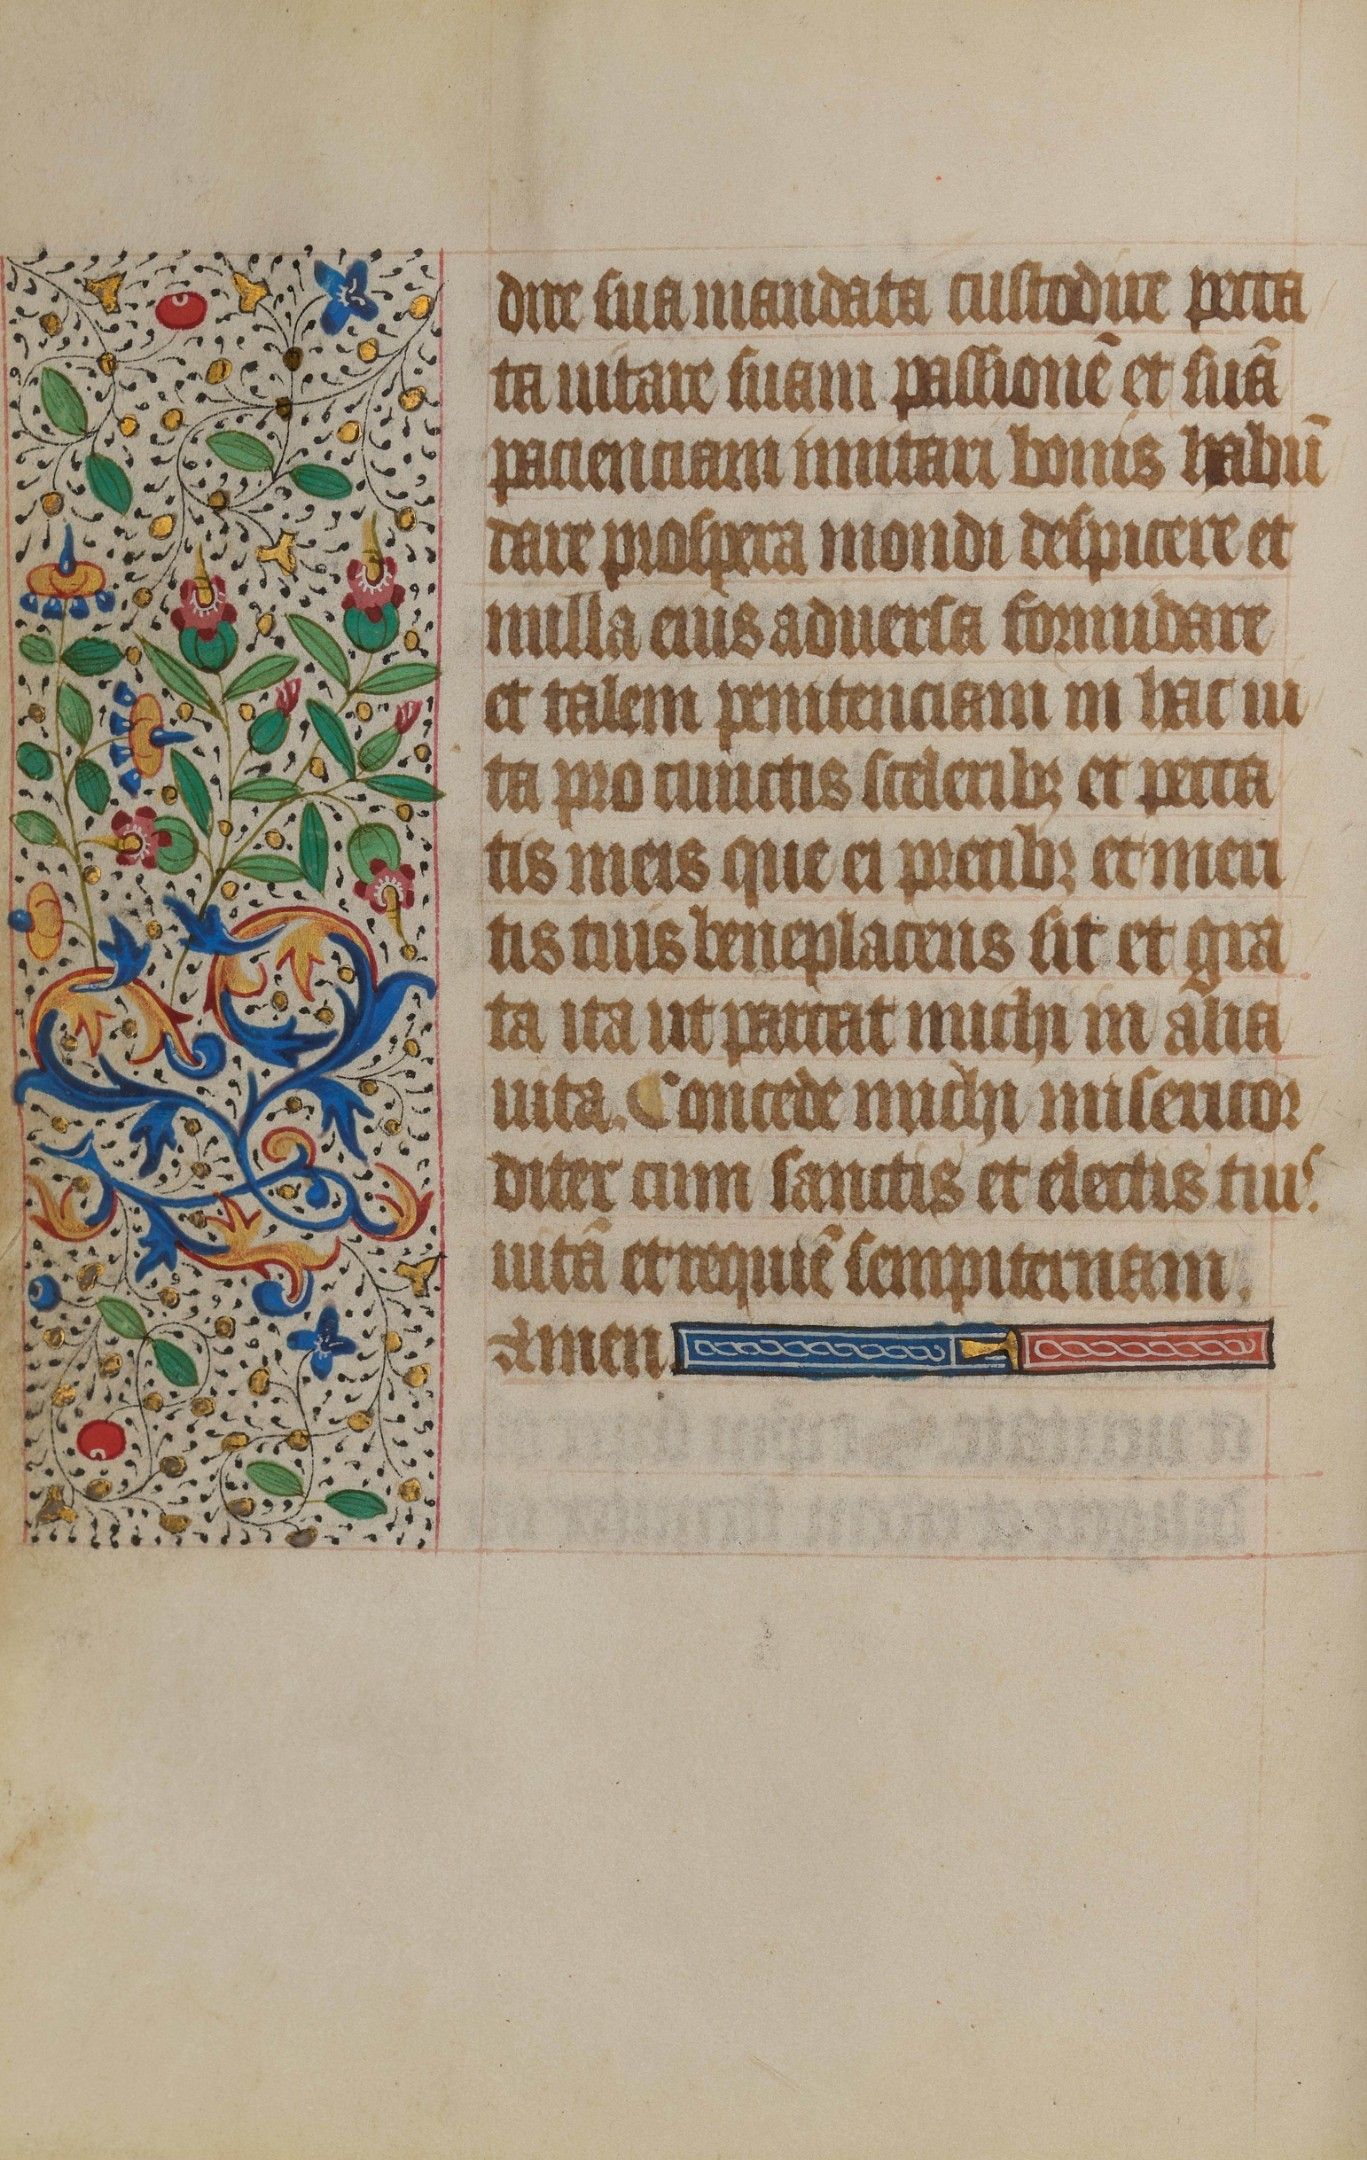 dire sua mandata custodire pecca
ta uitare suam passionē et suā
pacienciam imitari bonis habū
dare prospera mondi despicere et
nulla eius aduersa formidare
et talem penitenciam in hac ui
ta pro cunctis sceleribꝫ et pecca
tis meis que ei precibꝫ et meri
tis tuis beneplacens sit et gra
ta ita ut parcat michi in alia
uita. Concede michi misericor
diter cum sanctis et electis tuis.
uitā et requiē sempiternam.
Amen